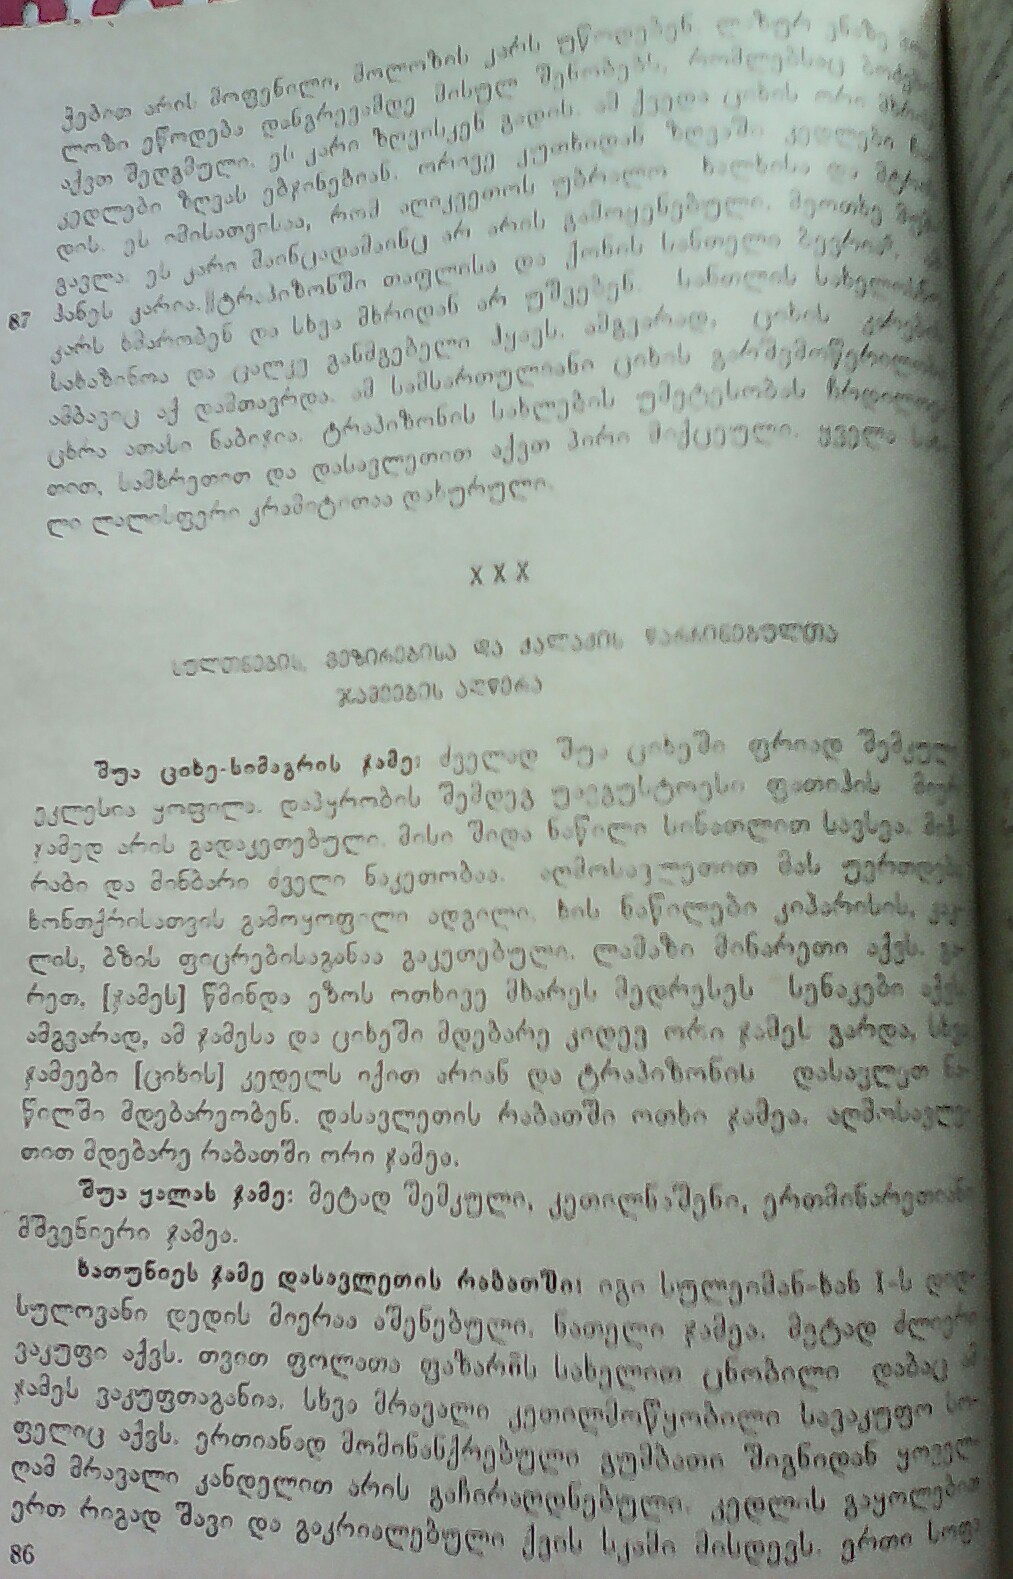 ჭებით არის მოფენილი, მოლოზის კარს უწოდებენ ლაზურ ენაზე
ლოზი ეწოდება დანგრევამდე მისულ შენობებს, რომლებსაც
აქვთ შედგმული. ეს კარი ზღვისკენ გადის. ამ ქვედა ციხის ორი
კედლები ზღვას ებჯინებიან. ორივე კუთხიდან ზღვაში კედლები
დის. ეს იმისათვისაა, რომ აღიკვეთოს უბრალო ხალხისა და
გავლა. ეს კარი მაინცადამაინც არ არის გამოყენებული. მეოთხე
87 პანეს კარია. || ტრაპიზონში თაფლისა და ქონის სანთელი ბევრია.
კარს ხმარობენ და სხვა მხრიდან არ უშვებენ. სანთლის
სახაზინოა და ცალკე განმგებელი ჰყავს. ამგვარად, ციხის კარების
ამბავიც აქ დამთავრდა. ამ სამსართულიანი ციხის გარშემოწერილობა
ცხრა ათასი ნაბიჯია. ტრაპიზონის სახლების უმეტესობას
თით, სამხრეთით და დასავლეთით აქვთ პირი მიქცეული. ყველა
ლი ლალისფერი კრამიტითაა დახურული.
X X X
სულთნების, ვეზირებისა და ქალაქის წარჩინებულთა
ჯამეების აღწერა
შუა ციხე-სიმაგრის ჯამე: ძველად შუა ციხეში ფრიად
ეკლესია ყოფილა. დაპყრობის შემდეგ უავგუსტოესი ფათიჰის
ჯამედ არის გადაკეთებული. მისი შიდა ნაწილი სინათლით სავსეა. მიჰ-
რაბი და მინბარი ძველი ნაკეთობაა. აღმოსავლეთით მას უერთდება
ხონთქრისათვის გამოყოფილი ადგილი. ხის ნაწილები კიპარისის, კაკ-
ლის, ბზის ფიცრებისაგანაა გაკეთებული. ლამაზი მინარეთი აქვს. გა-
რეთ, [ჯამეს] წმინდა ეზოს ოთხივე მხარეს მედრესეს სენაკები აქვს.
ამგვარად, ამ ჯამესა და ციხეში მდებარე კიდევ ორი ჯამეს გარდა, სხვა
ჯამეები [ციხის] კედელს იქით არიან და ტრაპიზონის დასავლეთ ნა-
წილში მდებარეობენ. დასავლეთის რაბათში ოთხი ჯამეა, აღმოსავლე-
თით მდებარე რაბათში ორი ჯამეა.
შუა ყალას ჯამე: მეტად შემკული, კეთილნაშენი, ერთმინარეთიანი
მშვენიერი ჯამეა.
ხათუნიეს ჯამე დასავლეთის რაბათში: იგი სულეიმან-ხან I-ს დიდ-
სულოვანი დედის მიერაა აშენებული. ნათელი ჯამეა. მეტად ძლიერი
ვაკუფი აქვს. თვით ფოლათა ფაზარის სახელით ცნობილი დაბაც ამ
ჯამეს ვაკუფთაგანია. სხვა მრავალი კეთილმოწყობილი სავაკუფო სო-
ფელიც აქვს. ერთიანად მომინანქრებული გუმბათი შიგნიდან ყოველ
ღამ მრავალი კანდელით არის გაჩირაღდნებული. კედლის გაყოლებით
ერთ რიგად შავი და გაკრიალებული ქვის სკამი მისდევს. ერთი
86